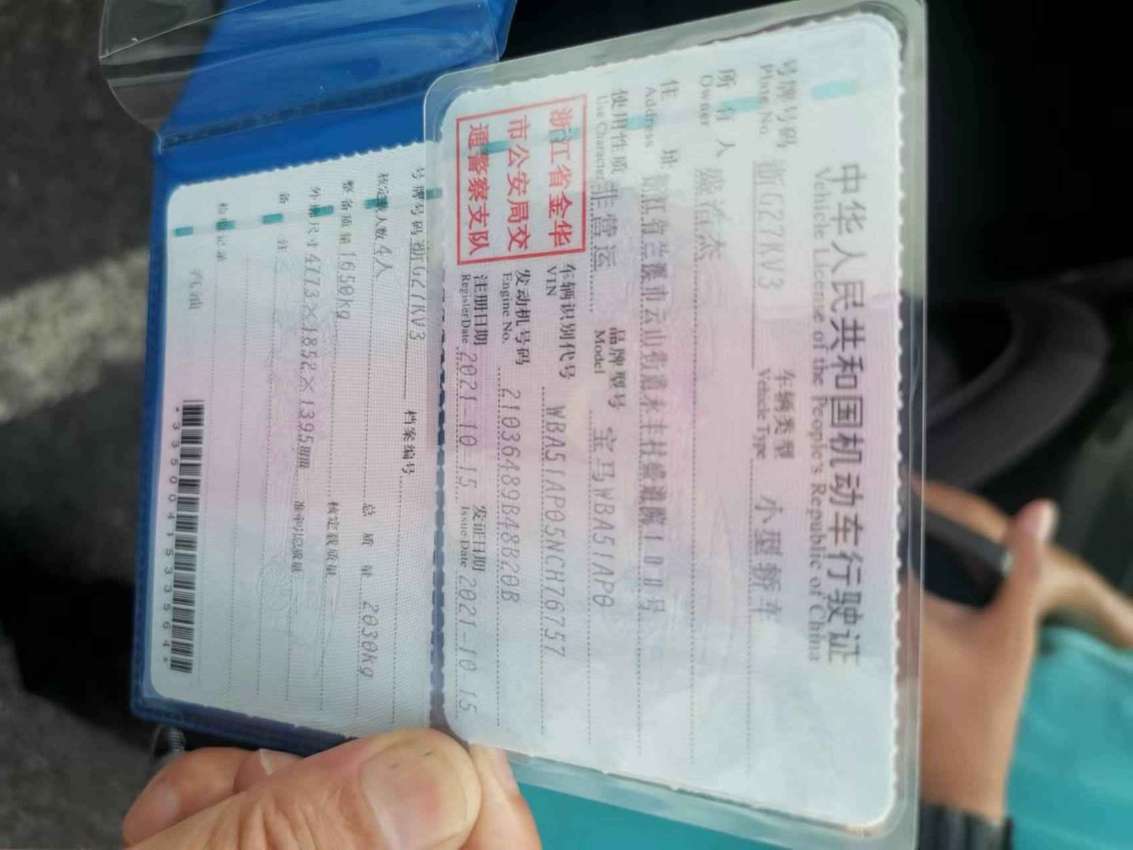 中华人民共和国机动车行驶证
Vehicle License of the People's Republic of China
号牌号码 浙G27KV3 车辆类型 小型轿车
Plate No. Vehicle Type
所有人
Owner
住址 浙江省兰溪市云山街道永丰村盛道院100号
Address
使用性质 非营运 品牌型号 宝马WBA51AP0
Use Character Model
浙江省金华
市公安局交
通警察支队
车辆识别代号 WBA51AP05NCH76757
VIN
发动机号码 21036489B48B20B
Engine No.
注册日期 2021-10-15 发证日期 2021-10-15
Register Date Issue Date
号牌号码 浙G27KV3 档案编号
核定载人数 4人 总质量 2030kg
整备质量 1650kg 核定载质量
外廓尺寸 4773×1852×1395 准牵引总质量
备注
检验记录
汽油